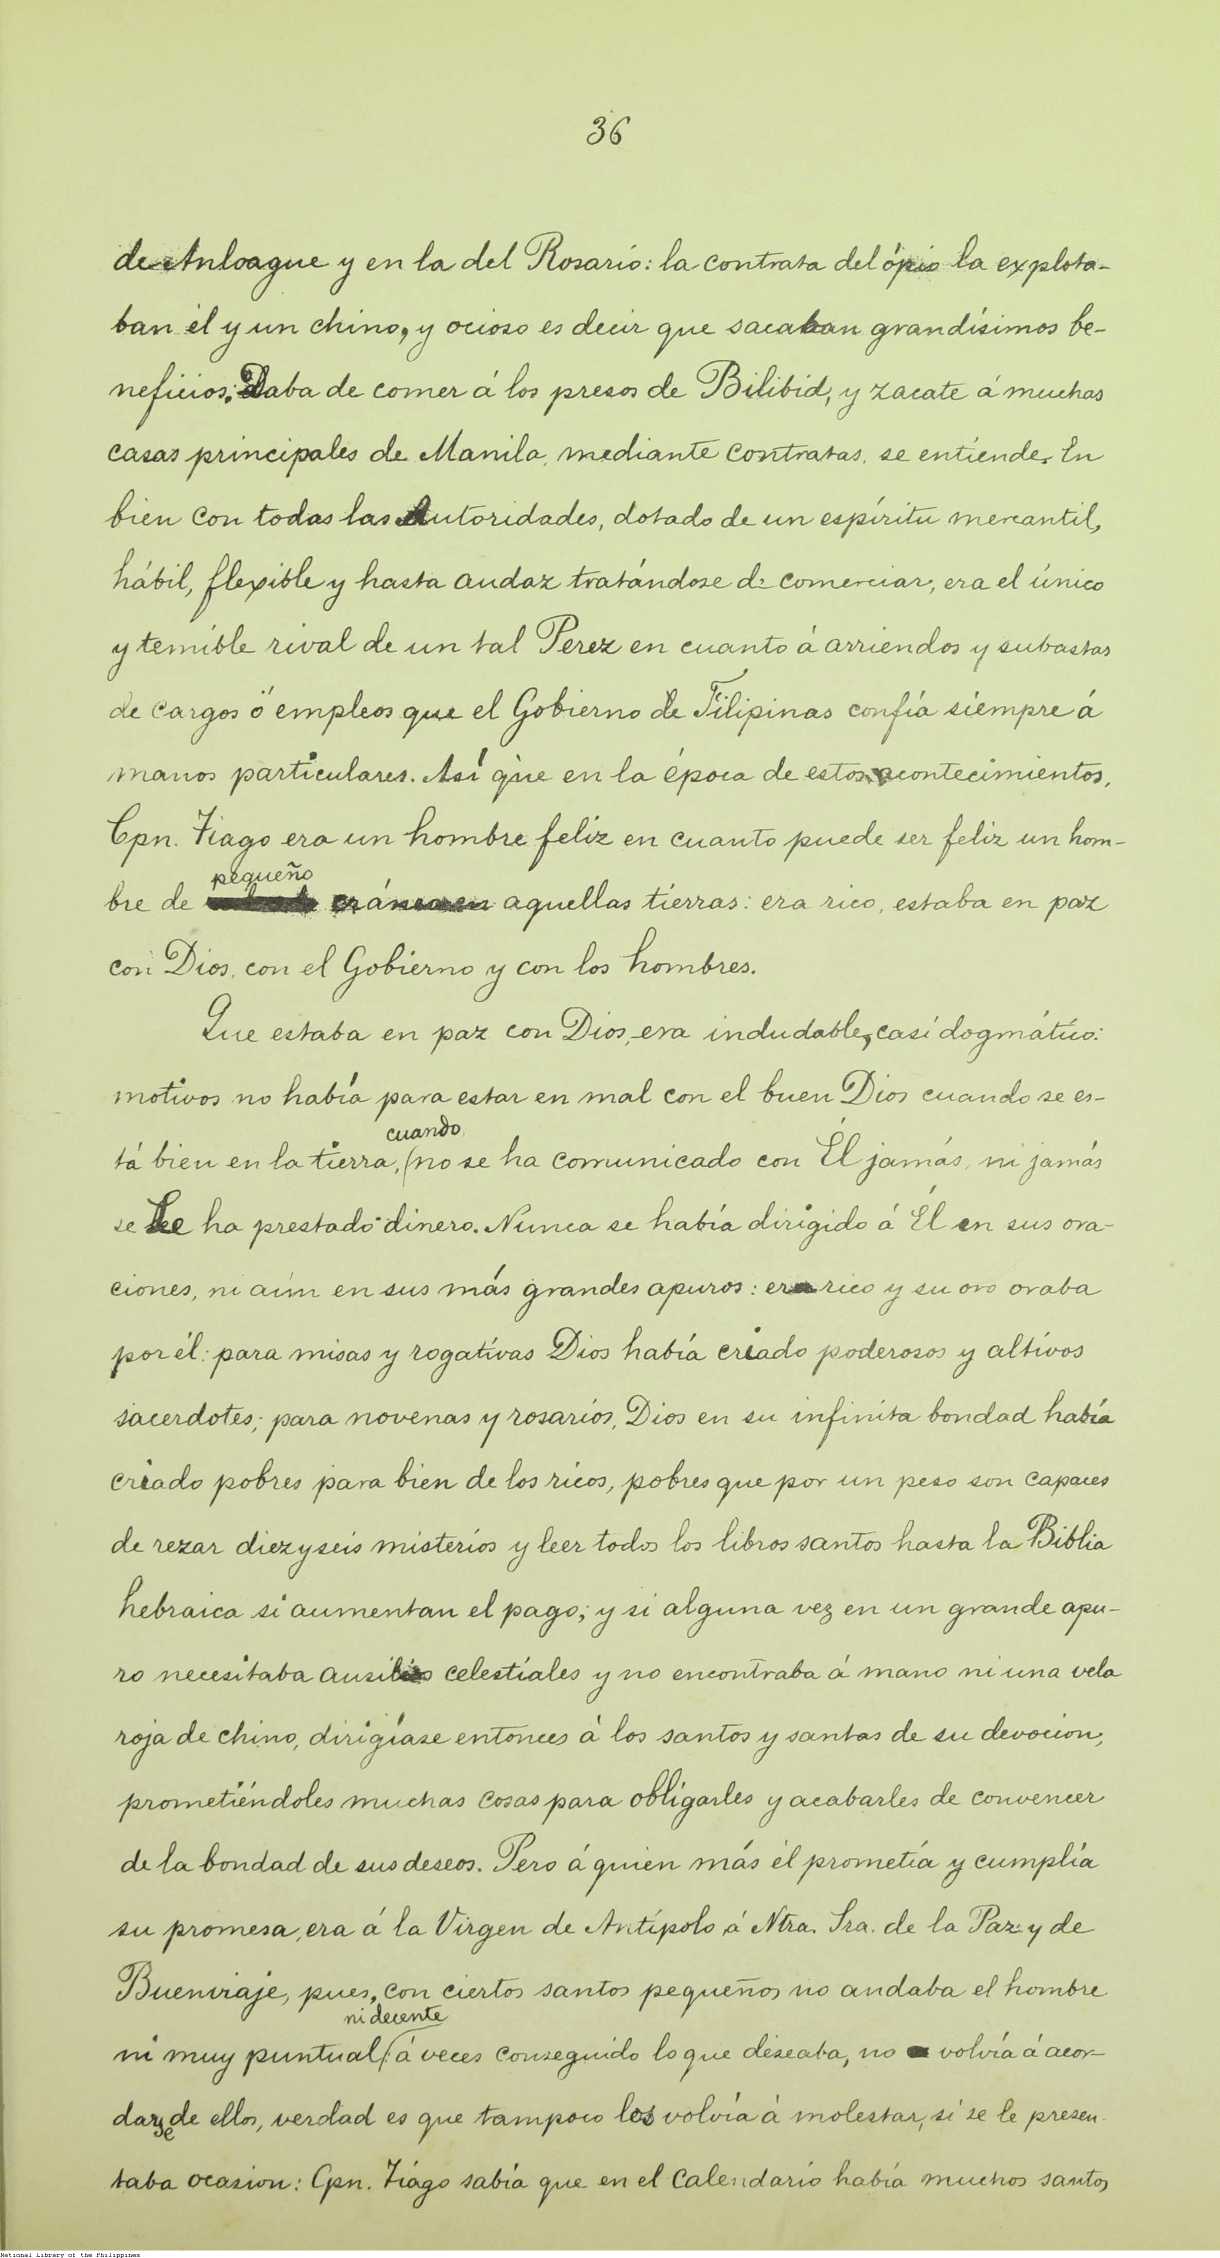 36
de Anloague y en la del Rosario: la contrata del ópio la explota-
ban él y un chino, y ocioso es decir que sacaban grandísimos be-
neficios. Daba de comer á los presos de Bilibid, y zacate á muchas
casas principales de Manila, mediante contratas, se entiende. En
bien con todas las Autoridades, dotado de un espíritu mercantil,
hábil, flexible y hasta audaz tratándose de comerciar, era el único
y temible rival de un tal Perez en cuanto á arriendos y subastas
de cargos ó empleos que el Gobierno de Filipinas confía siempre á
manos particulares. Así que en la época de estos acontecimientos,
Cpn. Tiago era un hombre feliz en cuanto puede ser feliz un hom-
pequeño
bre de cráneo en aquellas tierras: era rico, estaba en paz
con Dios, con el Gobierno y con los hombres.
Que estaba en paz con Dios, era indudable, casi dogmático:
motivos no había para estar en mal con el buen Dios cuando se es-
cuando
tá bien en la tierra, (no se ha comunicado con Él jamás, ni jamás
se Le ha prestado dinero. Nunca se había dirigido á Él en sus ora-
ciones, ni aún en sus más grandes apuros: era rico y su oro oraba
por él: para misas y rogativas Dios había criado poderosos y altivos
sacerdotes; para novenas y rosarios, Dios en su infinita bondad había
criado pobres para bien de los ricos, pobres que por un peso son capaces
de rezar diezyseis misterios y leer todos los libros santos hasta la Biblia
hebraica si aumentan el pago; y si alguna vez en un grande apu-
ro necesitaba ausilios celestiales y no encontraba á mano ni una vela
roja de chino, dirigíase entonces á los santos y santas de su devocion,
prometiéndoles muchas cosas para obligarles y acabarles de convencer
de la bondad de sus deseos. Pero á quien más él prometía y cumplía
su promesa, era á la Virgen de Antípolo á Ntra. Sra. de la Paz y de
Buenviaje, pues, con ciertos santos pequeños no andaba el hombre
ni decente
ni muy puntual (: á veces conseguido lo que deseaba, no volvía á acor-
darse de ellos, verdad es que tampoco los volvía á molestar, si se le presen-
taba ocasion: Cpn. Tiago sabía que en el calendario había muchos santos
National Library of the Philippines